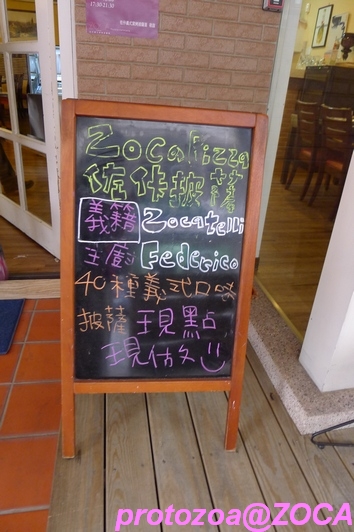 17:30-21:30
Zoca Pizza
佐佧披薩
義籍 Zocatelli
主廚 Federico
40種義式口味
披薩 現點
現做
protozoa@ZOCA